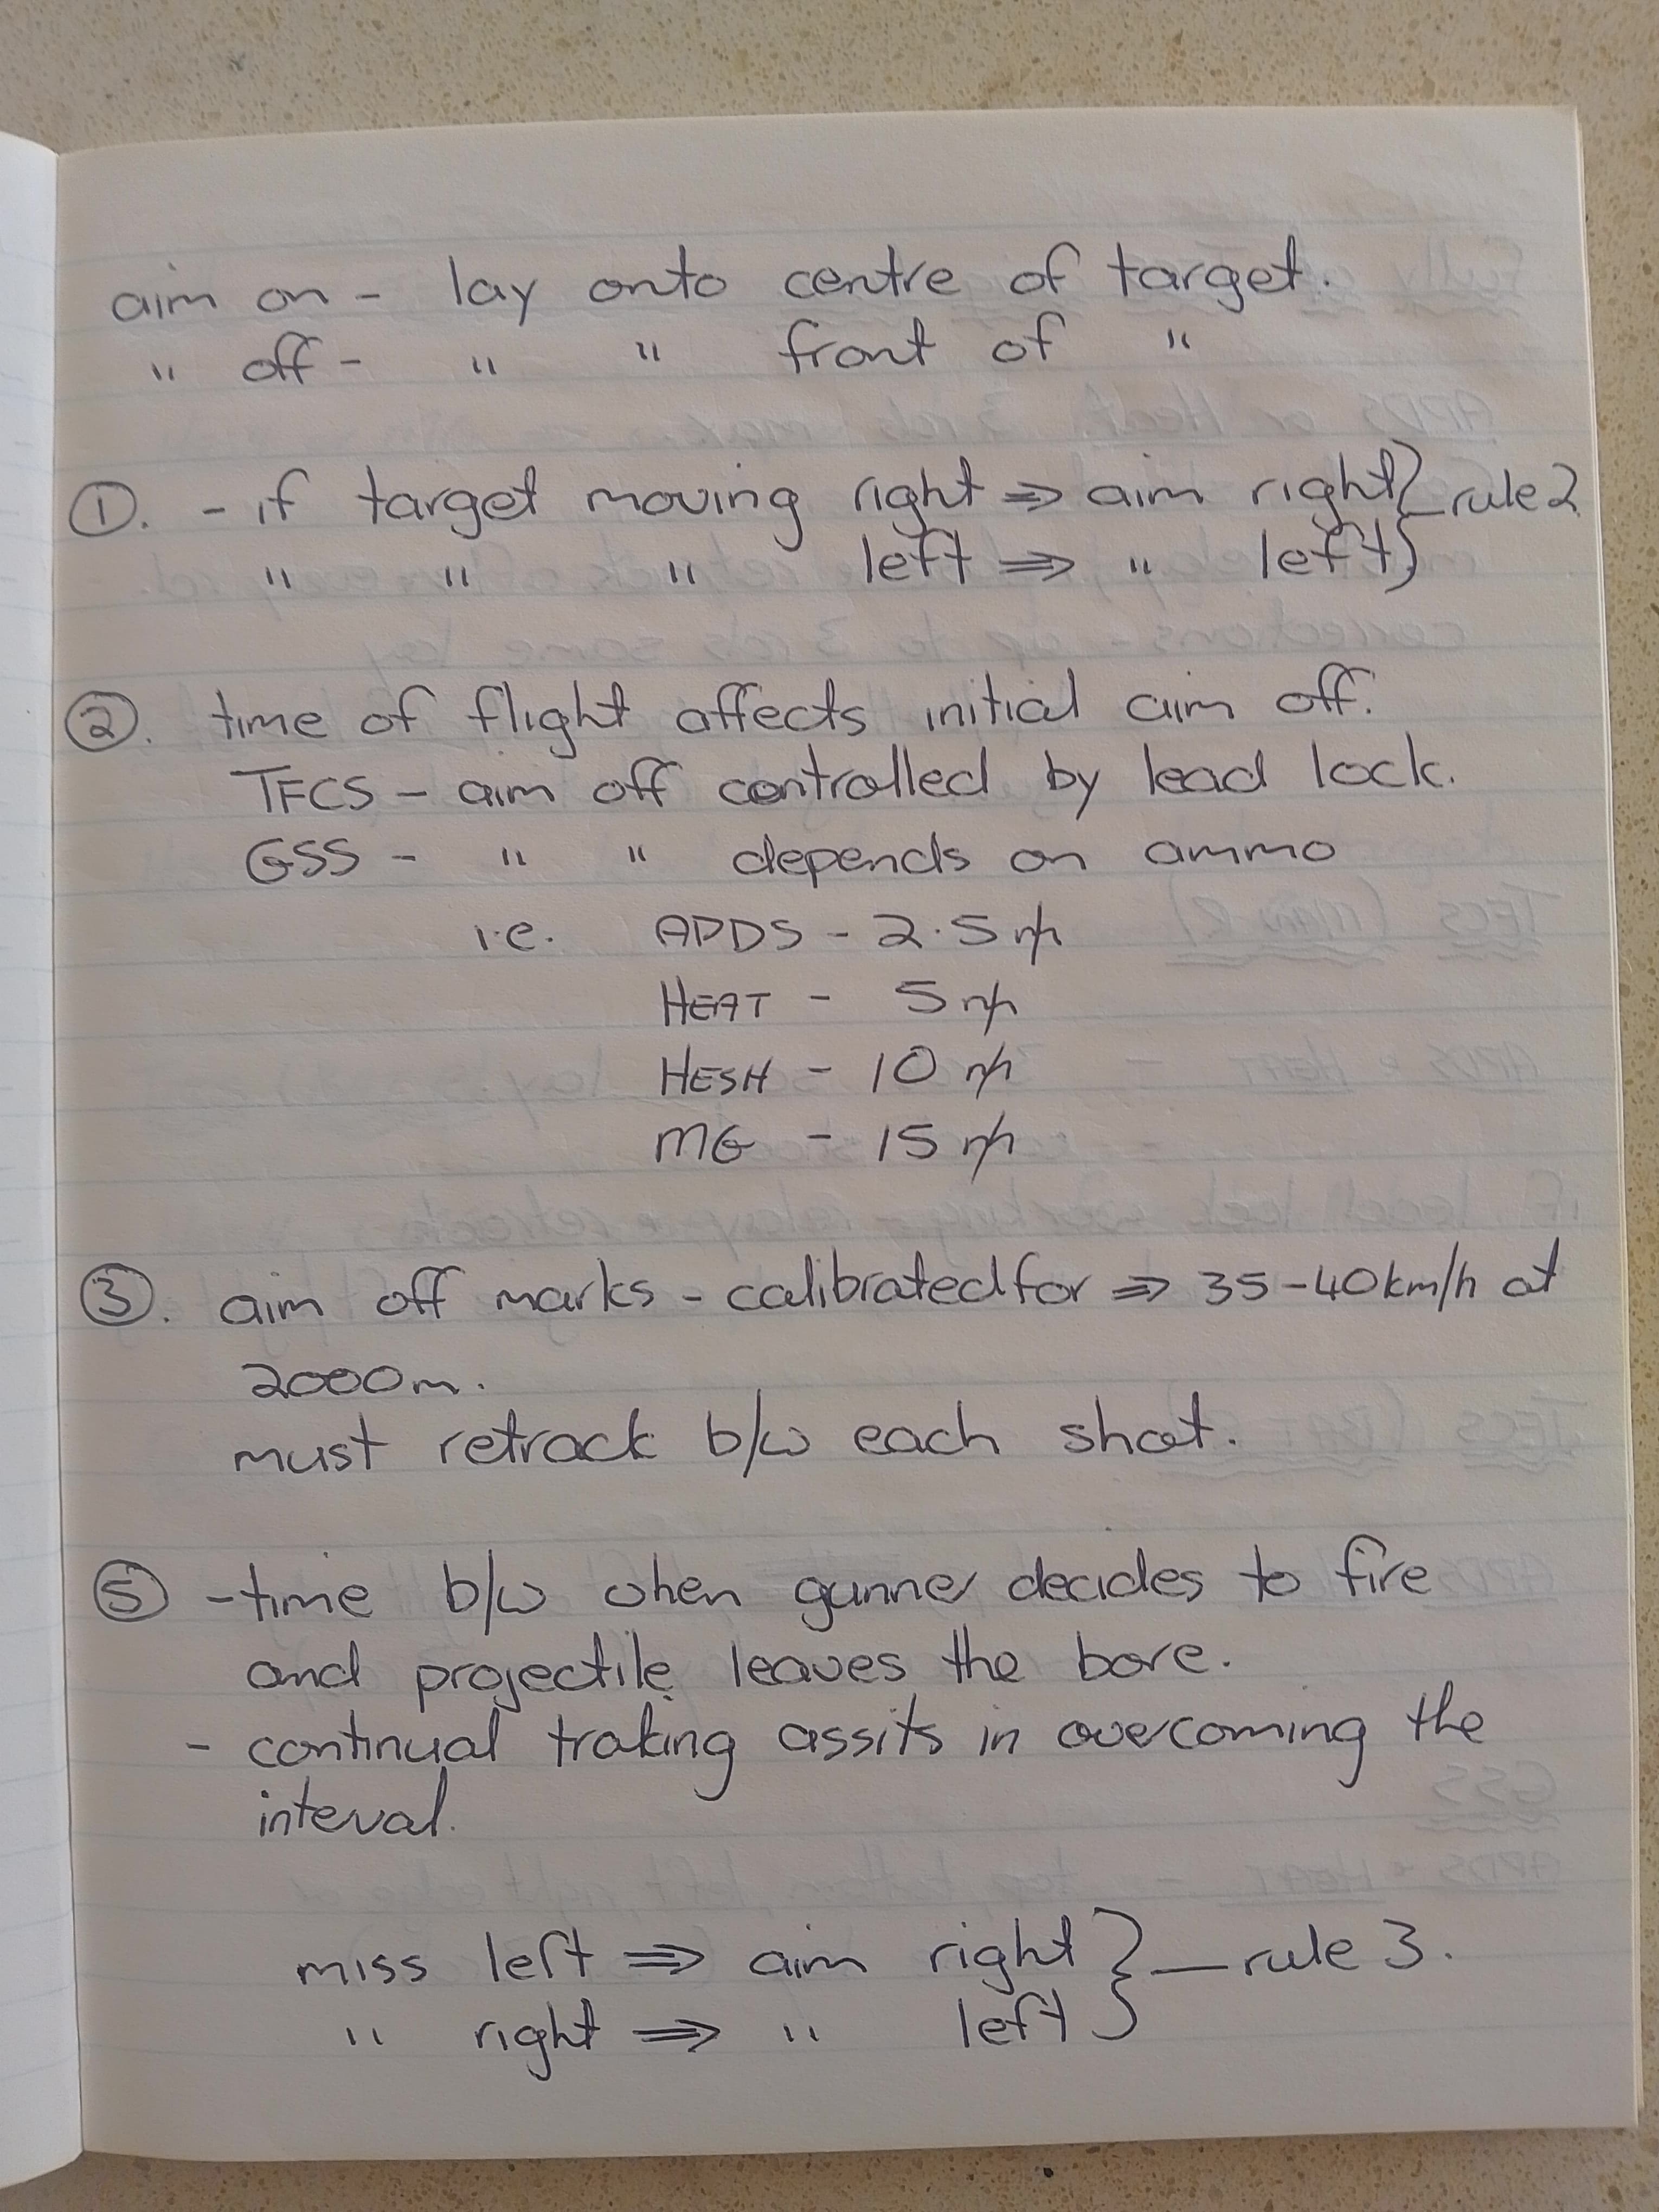 aim on - lay onto centre of target.
" off - " " front of "
①. - if target moving right ⇒ aim right } rule 2
" " " left ⇒ " left }
②. time of flight affects initial aim off.
TFCS - aim off controlled by lead lock.
GSS - " " depends on ammo
i.e. APDS - 2.5 m/s
HEAT - 5 m/s
HESH - 10 m/s
MG - 15 m/s
③. aim off marks - calibrated for ⇒ 35-40km/h at
2000m.
must retrack b/w each shot.
⑤ - time b/w when gunner decides to fire
and projectile leaves the bore.
- continual traking assits in overcoming the
interval.
miss left ⇒ aim right } — rule 3.
" right ⇒ " left }